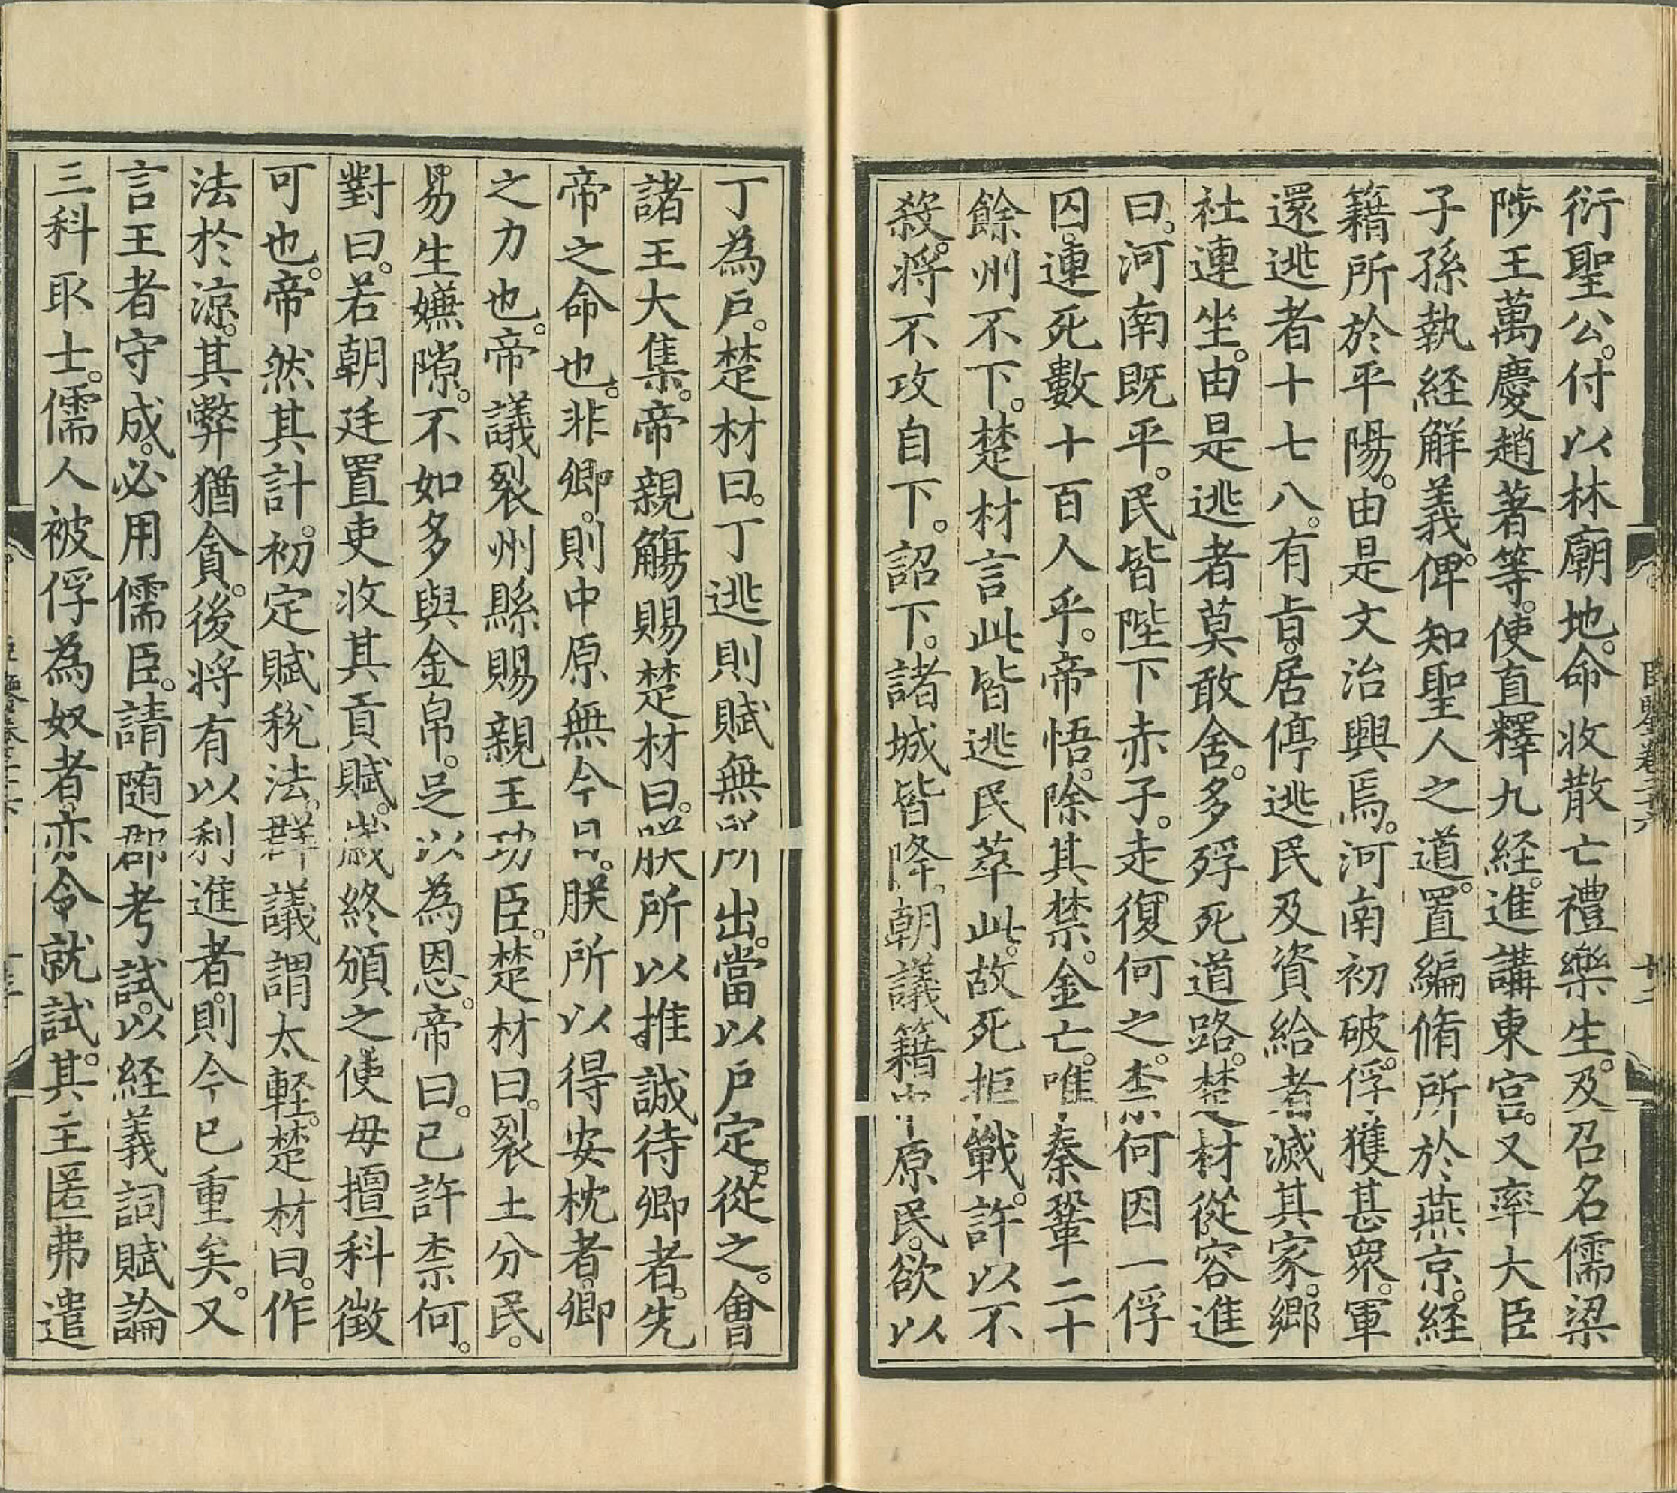 衍聖公。付以林廟地。命收散亡禮樂生。及召名儒梁
陟王萬慶趙著等。使直釋九経。進講東宮。又率大臣
子孫執経解義。俾知聖人之道。置編脩所於燕京。経
籍所於平陽。由是文治興焉。河南初破。俘獲甚衆。軍
還逃者十七八。有㫖。居停逃民及資給者滅其家。鄉
社連坐。由是逃者莫敢舍。多殍死道路。楚材從容進
曰。河南既平。民皆陛下赤子。走復何之。柰何因一俘
囚。連死數十百人乎。帝悟。除其禁。金亡。唯秦鞏二十
餘州不下。楚材言此皆逃民萃此。故死拒戰。許以不
殺。將不攻自下。詔下。諸城皆降。朝議籍中原民。欲以
丁為戶。楚材曰。丁逃則賦無所出。當以戶定。從之。會
諸王大集。帝親觴賜楚材曰。朕所以推誠待卿者。先
帝之命也。非卿。則中原無今日。朕所以得安枕者。卿
之力也。帝議裂州縣賜親王功臣。楚材曰。裂土分民。
易生嫌隙。不如多與金帛。足以為恩。帝曰。已許柰何。
對曰。若朝廷置吏收其貢賦。歲終頒之使毋擅科徵
可也。帝然其計。初定賦稅法。群議謂太軽。楚材曰。作
法於涼。其弊猶貪。後將有以利進者。則今已重矣。又
言王者守成。必用儒臣。請随郡考試。以経義詞賦論
三科取士。儒人被俘為奴者。亦令就試。其主匿弗遣